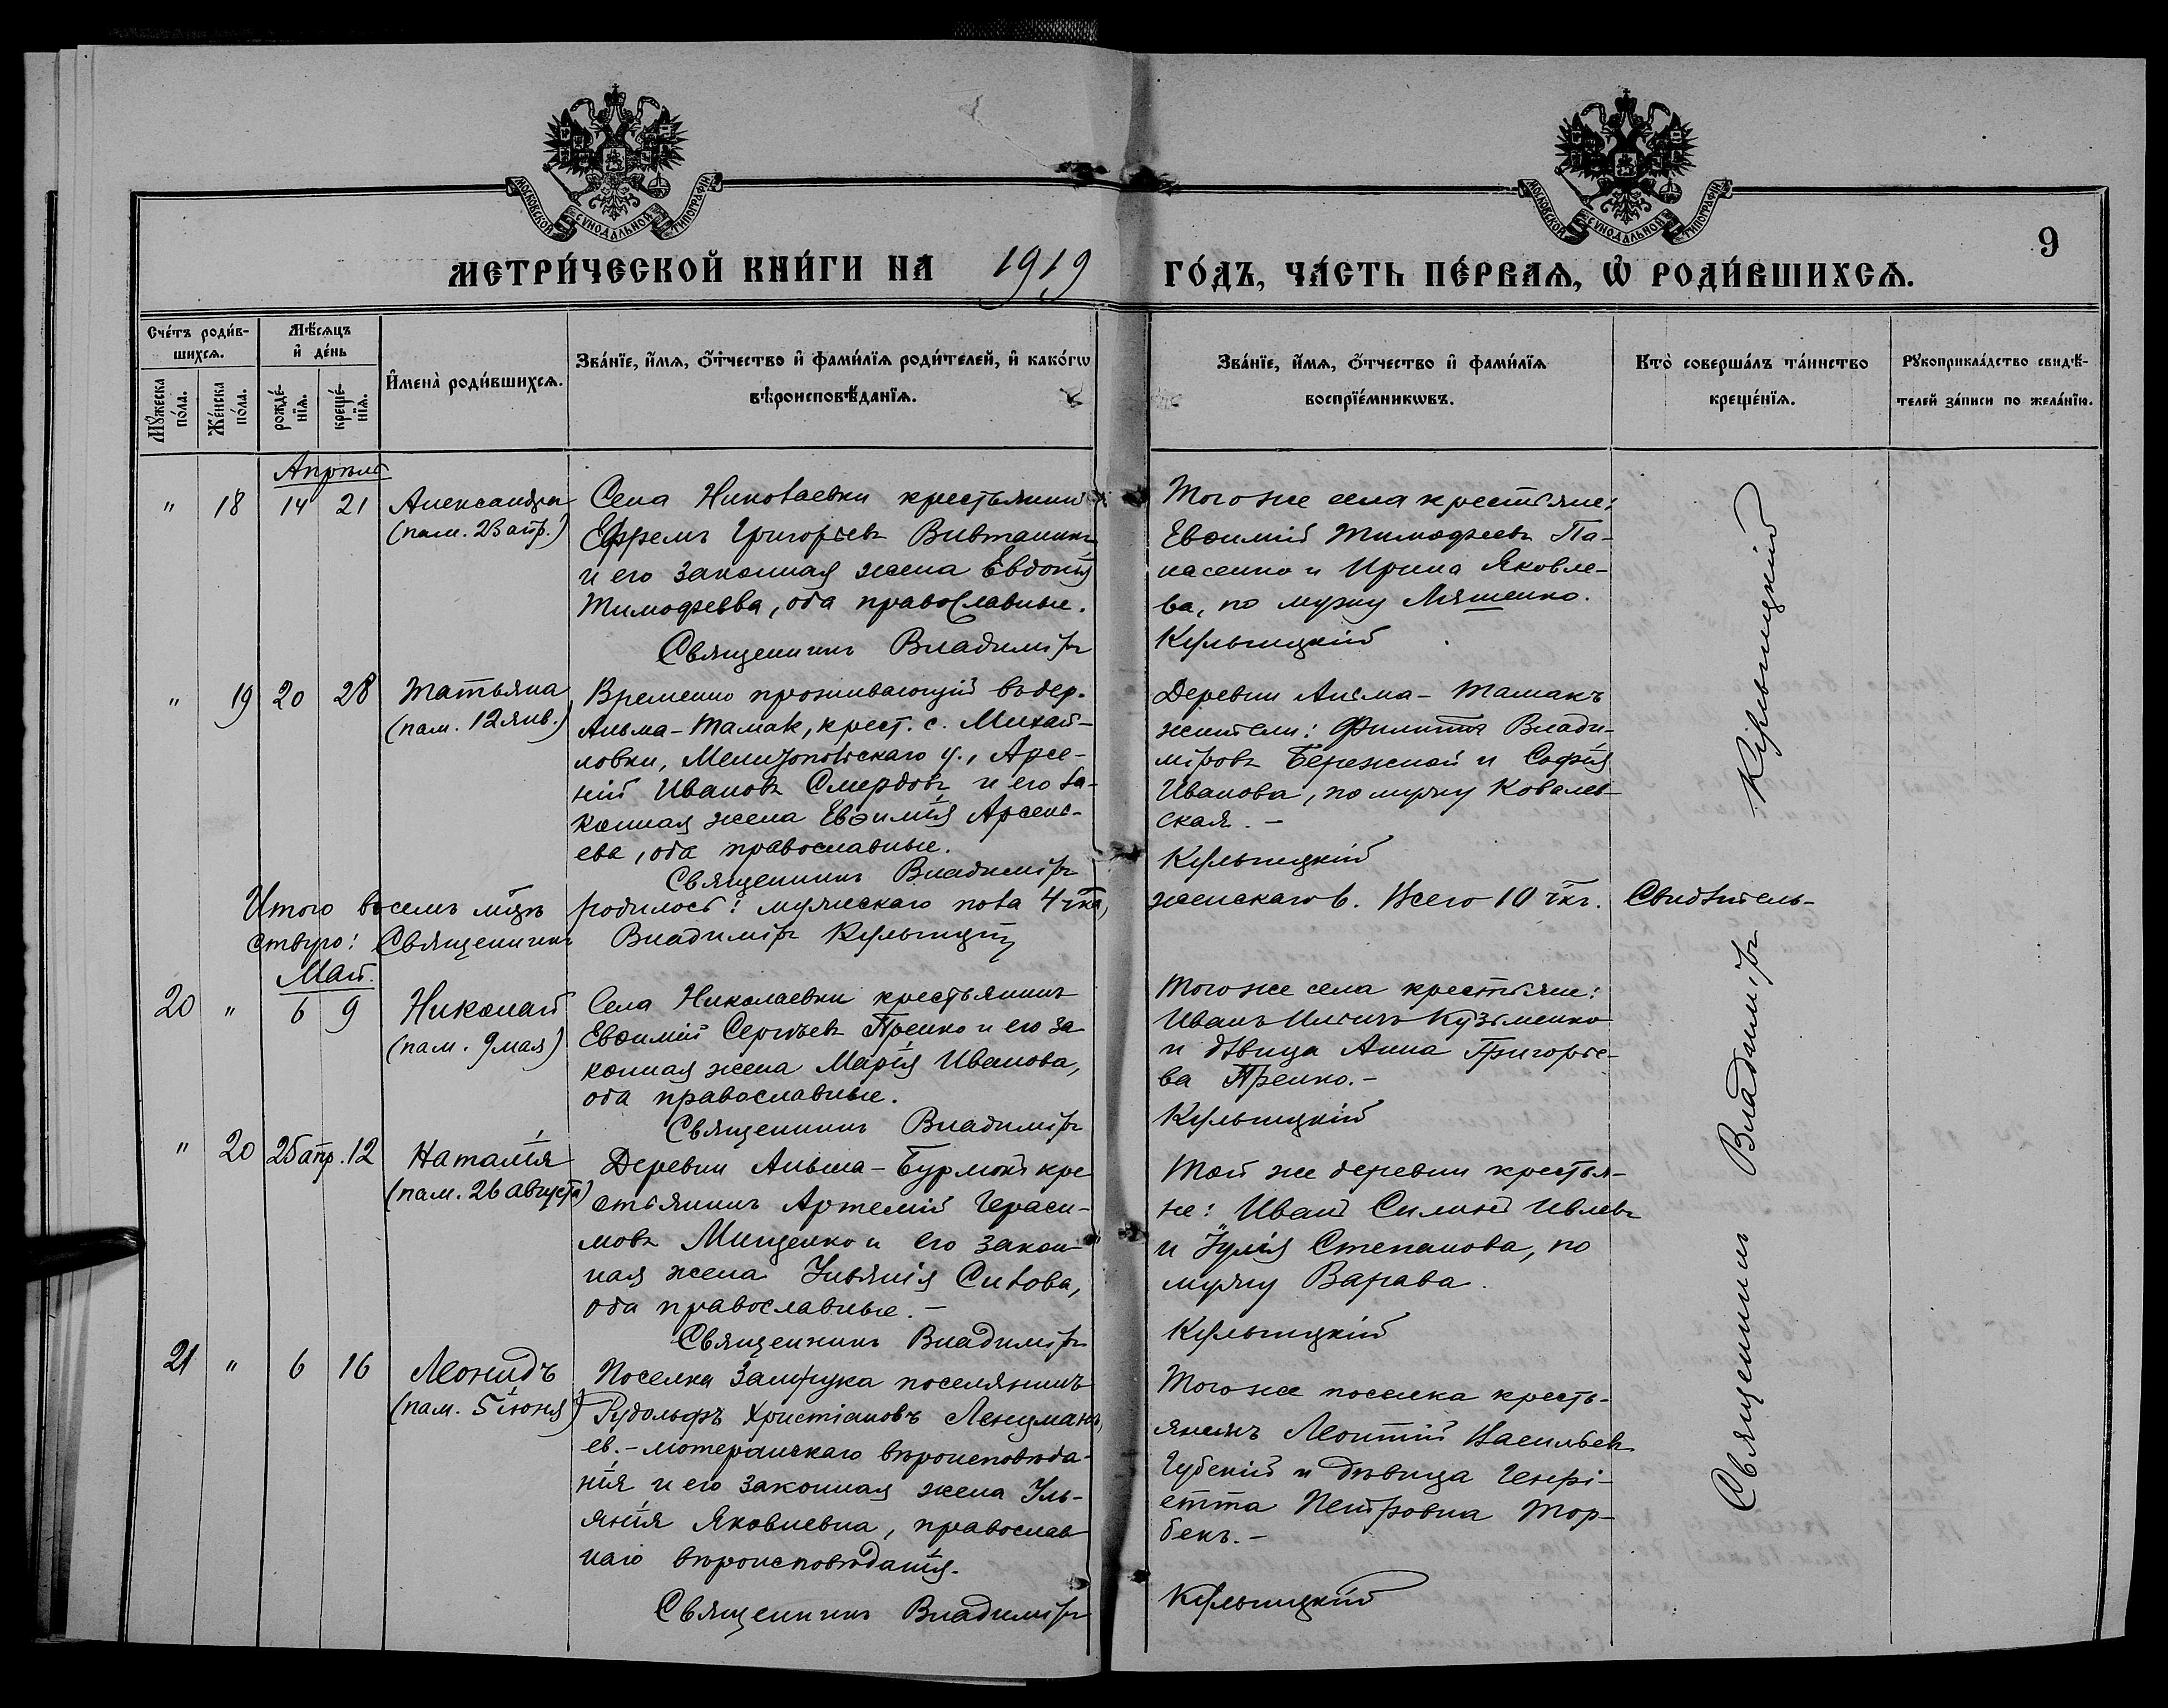 МОСКОВСКОЙ СѴНОДАЛЬНОЙ ТИПОГРАФІИ
МОСКОВСКОЙ СѴНОДАЛЬНОЙ ТИПОГРАФІИ
9
МЕТРИ́ЧЕСКОЙ КНИ́ГИ НА 1919 ГО́ДЪ, ЧА́СТЬ ПЕ́РВАѦ, Ѡ҆ РОДИ́ВШИХСѦ.
Сче́тъ роди́в-
шихсѧ.
Мꙋ́жеска по́ла.
Же́нска по́ла.
Мѣ́сѧцъ
и҆ де́нь
рожде́-
нїѧ.
креще́-
нїѧ.
И҆мена̀ роди́вшихсѧ.
Зва́нїе, и҆́мѧ, ѻ҆́тчество и҆ фами́лїѧ роди́телей, и҆ како́гѡ
вѣроисповѣ́данїѧ.
Зва́нїе, и҆́мѧ, ѻ҆́тчество и҆ фами́лїѧ
воспрїе́мникѡвъ.
Кто̀ соверша́лъ та́инство
креще́нїѧ.
Рꙋкоприкла́дство свидѣ́-
телей за́писи по жела́нїю.
Апрѣль
" 18 14 21 Александра
(пам. 23 апр.)
Села Николаевки крестьянинъ
Ефремъ Григорьевъ
и его законная жена Евдокія
Тимофеева, оба православные.
Священникъ Владиміръ
Того же села крестьяне:
Евѳимій Тимофеевъ Па-
насенко и Ирина Яковле-
ва, по мужу Ляшенко.
Кульчицкій
" 19 20 28 Татьяна
(пам. 12 янв.)
Временно проживающій въ дер.
Альма-Тамак, крест. с. Михай-
ловки, Мелитопольскаго у., Арсе-
ній Ивановъ Смердовъ и его за-
конная жена Евѳимія Арсень-
ева, оба православные.
Священникъ Владиміръ
Деревни Альма-Тамакъ
жители: Филиппъ Влади-
міровъ Бережной и Софія
Иванова, по мужу Ковалев-
ская. -
Кульчицкій
Итого родилось: мужскаго пола 4, женскаго 6. Всего 10 Свидѣтель-
ствую: Священникъ Владиміръ Кульчицкій
Май.
20 " 6 9 Николай
(пам. 9 мая)
Села Николаевки крестьянинъ
Евѳимій Сергѣевъ и его за
конная жена Марія Иванова,
оба православные.
Священникъ Владиміръ
Того же села крестьяне:
Иванъ Ильичъ Кузьменко
и дѣвица Анна Григорье-
ва
Кульчицкій
" 20 25 апр. 12 Наталія
(пам. 26 августа)
Деревни Альма- кре
стьянинъ Артемій Гераси-
мовъ Мищенко и его закон-
ная жена Ульянія Силова,
оба православные. -
Священникъ Владиміръ
Той же деревни крестья-
не: Иванъ Ивлевъ
и Юлія Степанова, по
мужу Варава.
Кульчицкій
21 " 6 16 Леонидъ
(пам. 5 іюня)
Поселка поселянинъ
Рудольфъ Христіановъ Ленцманъ,
ев.-лютеранскаго вѣроисповѣда-
нія и его законная жена Уль-
янія Яковлевна, православ
наго вѣроисповѣданія.
Священникъ Владиміръ
Того же поселка кресть-
янинъ Леонтій Васильевъ
Губскій и дѣвица Генрі-
етта Петровна Тор-
бекъ. -
Кульчицкій
Священникъ Владиміръ Кульчицкій